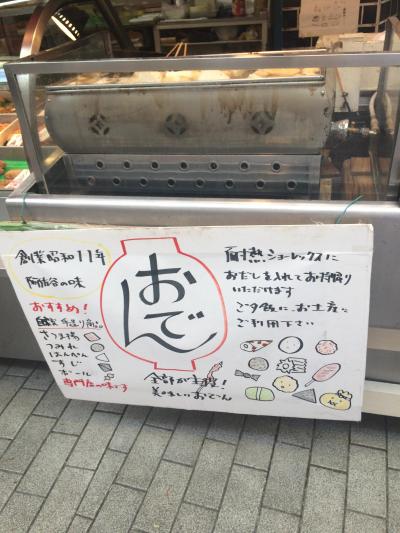 創業昭和11年
阿佐谷の味
おすすめ!
手造り
さつま揚
つみれ
はんぺん
すじ
ボール
専門店の味です
おでん
全部が主役!
美味しいおでん
耐熱ジョーレックスに
おだしを入れてお持帰り
いただけます
ご夕飯に、お土産に
ご利用下さい